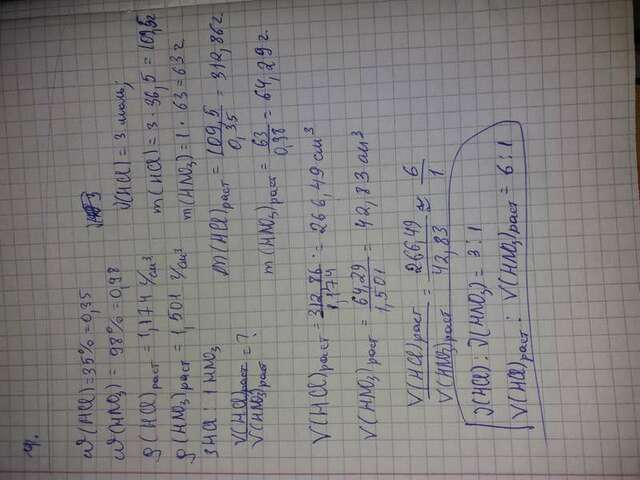 19.
ω(HCl) = 35% = 0,35
ω(HNO₃) = 98% = 0,98
ρ(HCl)раст = 1,174 г/см³
ρ(HNO₃)раст = 1,501 г/см³
3HCl : 1HNO₃
V(HCl)раст / V(HNO₃)раст = ?
ν(HCl) = 3 моль;
m(HCl) = 3 · 36,5 = 109,5г
m(HNO₃) = 1 · 63 = 63г
m(HCl)раст = 109,5 / 0,35 = 312,86г
m(HNO₃)раст = 63 / 0,98 = 64,29г.
V(HCl)раст = 312,86 / 1,174 = 266,49 см³
V(HNO₃)раст = 64,29 / 1,501 = 42,83 см³
V(HCl)раст / V(HNO₃)раст = 266,49 / 42,83 ≈ 6 / 1
ν(HCl) : ν(HNO₃) = 3 : 1
V(HCl)раст : V(HNO₃)раст = 6 : 1